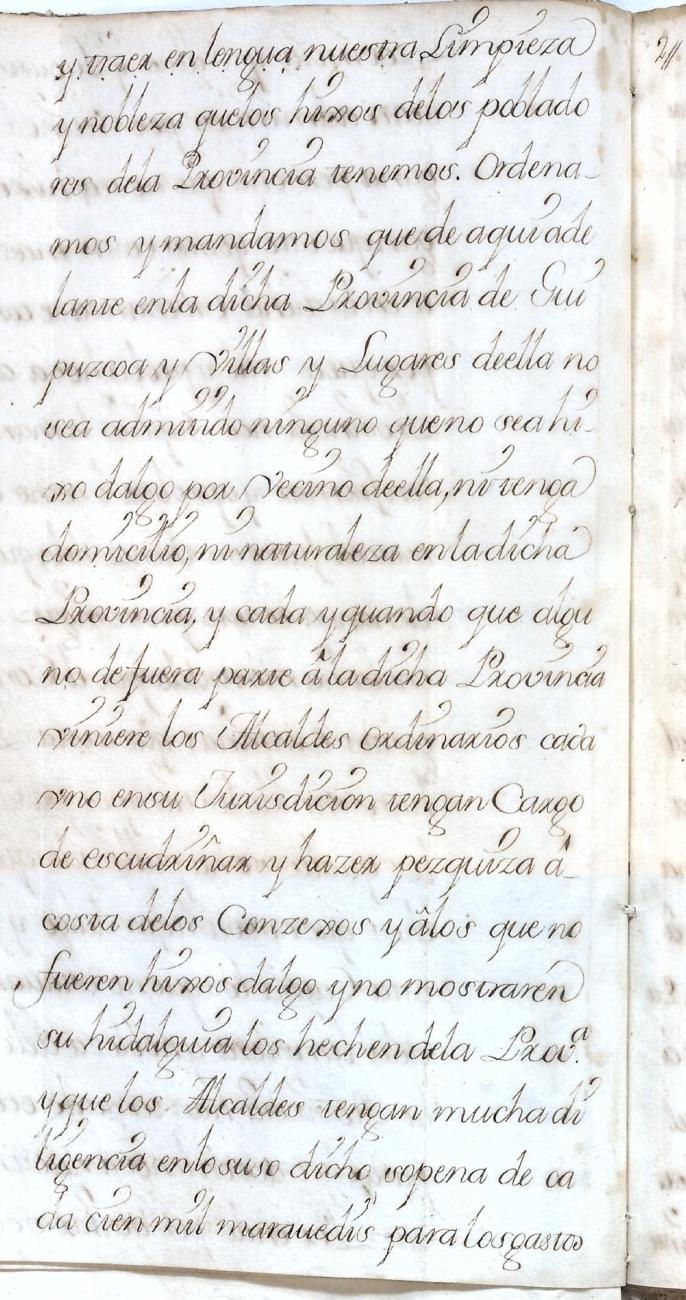 y traer en lengua nuestra Limpieza
y nobleza que los hixos de los poblado
res dela Provincia tenemos. Ordena_
mos y mandamos que de aqui ade
lante enla dicha Provincia de Gui
puzcoa y Villas y Lugares deella no
sea admitido ninguno que no sea hi_
xo dalgo por Vecino deella, ni tenga
domicilio, ni naturaleza en la dicha
Provincia, y cada y quando que algu
no de fuera parte â la dicha Provincia
viniere los Alcaldes ordinarios cada
vno en su Jurisdicion tengan Cargo
de escudriñar y hazer pezquiza â_
costa delos Conzexos y âlos que no
fueren hixos dalgo y no mostraren
su hidalguia los hechen dela Prov.ª
y que los Alcaldes tengan mucha di
ligencia enlo suso dicho sopena de ca
da cien mil marauedis para los gastos
2//